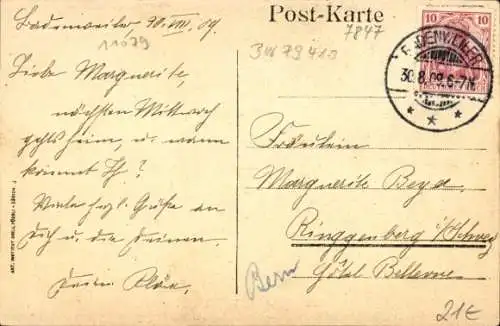 Post-Karte
Badenweiler 30. VIII. 09.
11079
BW 79410
7847
10 10
BADENWEILER
30.8.09. 6-7N.
Liebe Marguerite,
nächsten Mittwoch
gehts heim, u. wann
kommst Ih. ?
Viele hzl. Grüße an
Dich u. die Deinen.
Deine
Fräulein
Marguerite Beya
Ringgenberg i/Schweiz
Hôtel Bellevue
Bern
21€